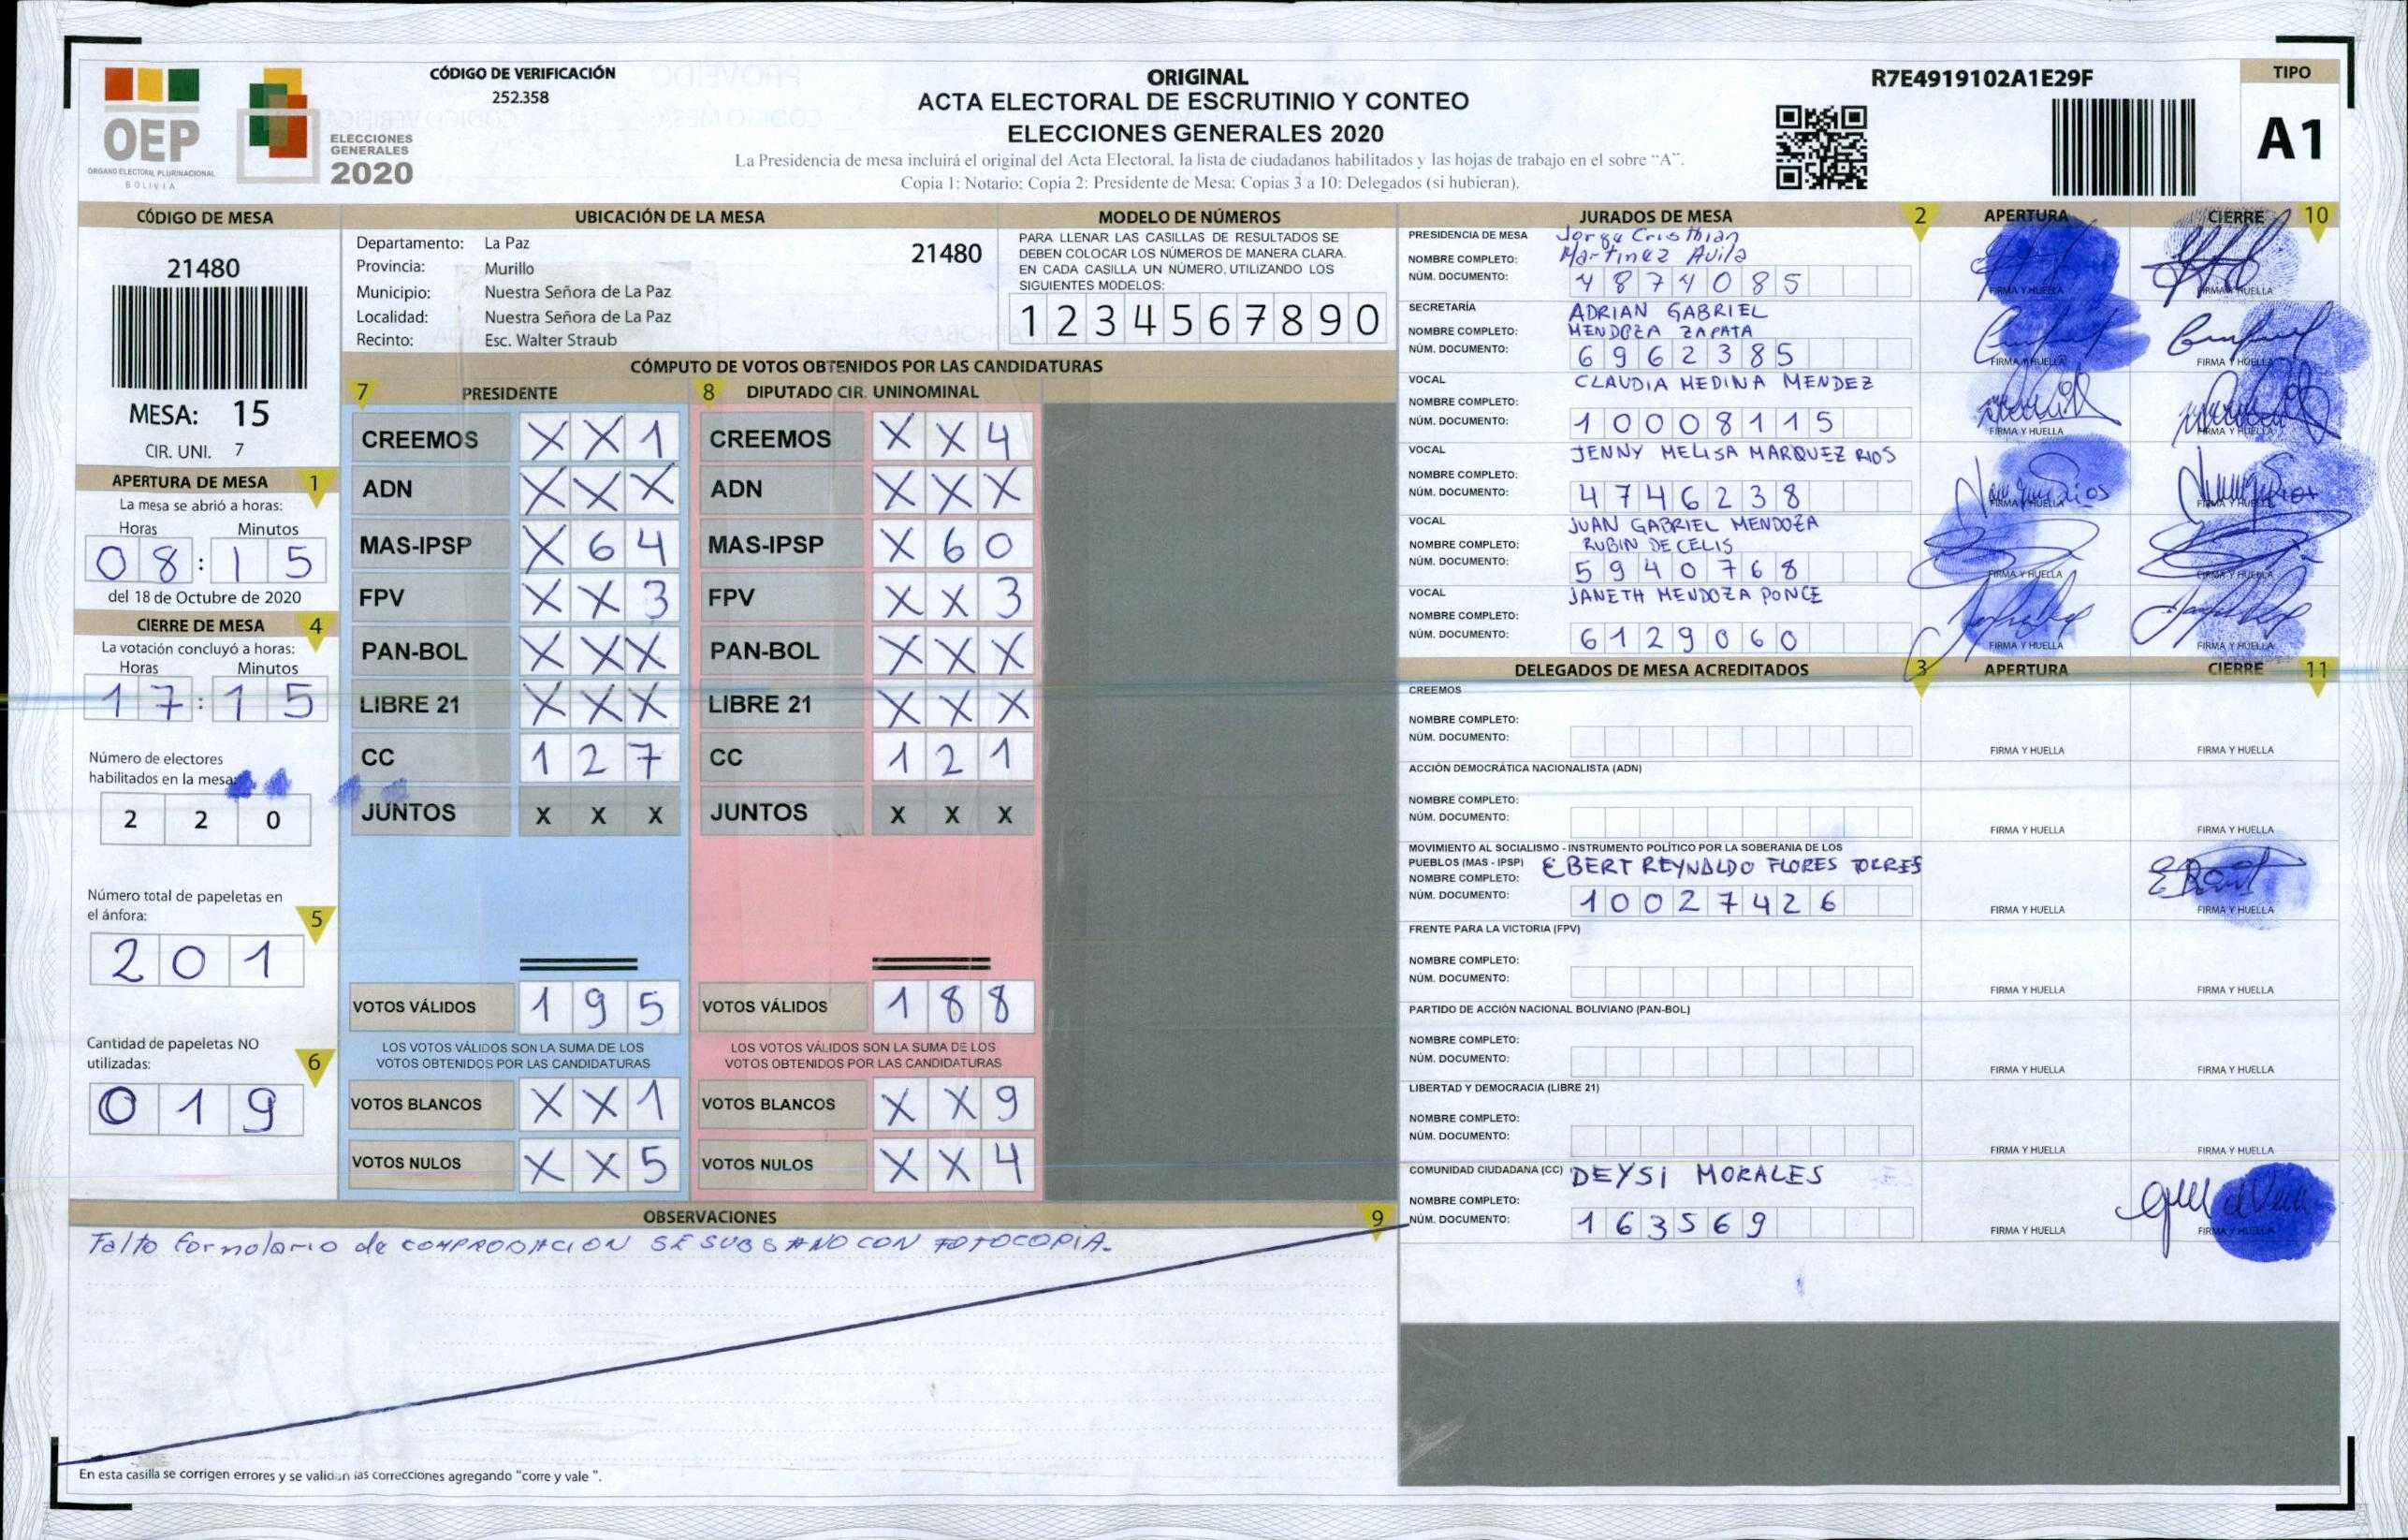 CÓDIGO DE VERIFICACIÓN
252.358
OEP
ÓRGANO ELECTORAL PLURINACIONAL
BOLIVIA
ELECCIONES
GENERALES
2020
ORIGINAL
ACTA ELECTORAL DE ESCRUTINIO Y CONTEO
ELECCIONES GENERALES 2020
La Presidencia de mesa incluirá el original del Acta Electoral, la lista de ciudadanos habilitados y las hojas de trabajo en el sobre "A".
Copia 1: Notario; Copia 2: Presidente de Mesa; Copias 3 a 10: Delegados (si hubieran).
R7E4919102A1E29F
TIPO
A1
CÓDIGO DE MESA
21480
MESA: 15
CIR. UNI. 7
APERTURA DE MESA 1
La mesa se abrió a horas:
Horas Minutos
08:15
del 18 de Octubre de 2020
CIERRE DE MESA 4
La votación concluyó a horas:
Horas Minutos
17:15
Número de electores
habilitados en la mesa:
2 2 0
Número total de papeletas en
el ánfora: 5
2 0 1
Cantidad de papeletas NO
utilizadas: 6
0 1 9
UBICACIÓN DE LA MESA
Departamento: La Paz 21480
Provincia: Murillo
Municipio: Nuestra Señora de La Paz
Localidad: Nuestra Señora de La Paz
Recinto: Esc. Walter Straub
MODELO DE NÚMEROS
PARA LLENAR LAS CASILLAS DE RESULTADOS SE
DEBEN COLOCAR LOS NÚMEROS DE MANERA CLARA.
EN CADA CASILLA UN NÚMERO, UTILIZANDO LOS
SIGUIENTES MODELOS:
1 2 3 4 5 6 7 8 9 0
CÓMPUTO DE VOTOS OBTENIDOS POR LAS CANDIDATURAS
7 PRESIDENTE 8 DIPUTADO CIR. UNINOMINAL
CREEMOS X X 1 CREEMOS X X 4
ADN X X X ADN X X X
MAS-IPSP X 6 4 MAS-IPSP X 6 0
FPV X X 3 FPV X X 3
PAN-BOL X X X PAN-BOL X X X
LIBRE 21 X X X LIBRE 21 X X X
CC 1 2 7 CC 1 2 1
JUNTOS X X X JUNTOS X X X
VOTOS VÁLIDOS 1 9 5 VOTOS VÁLIDOS 1 8 8
LOS VOTOS VÁLIDOS SON LA SUMA DE LOS LOS VOTOS VÁLIDOS SON LA SUMA DE LOS
VOTOS OBTENIDOS POR LAS CANDIDATURAS VOTOS OBTENIDOS POR LAS CANDIDATURAS
VOTOS BLANCOS X X 1 VOTOS BLANCOS X X 9
VOTOS NULOS X X 5 VOTOS NULOS X X 4
OBSERVACIONES 9
Falto formolario de COMPRODACION SE SUBSANO CON FOTOCOPIA.
En esta casilla se corrigen errores y se validan las correcciones agregando "corre y vale ".
JURADOS DE MESA 2 APERTURA CIERRE 10
PRESIDENCIA DE MESA Jorge Cristhian
NOMBRE COMPLETO: Martinez Avila
NÚM. DOCUMENTO: 4874085 FIRMA Y HUELLA FIRMA Y HUELLA
SECRETARÍA ADRIAN GABRIEL
NOMBRE COMPLETO: MENDOZA ZAPATA
NÚM. DOCUMENTO: 6962385 FIRMA Y HUELLA FIRMA Y HUELLA
VOCAL CLAUDIA MEDINA MENDEZ
NOMBRE COMPLETO:
NÚM. DOCUMENTO: 10008115 FIRMA Y HUELLA FIRMA Y HUELLA
VOCAL JENNY MELISA MARQUEZ RIOS
NOMBRE COMPLETO:
NÚM. DOCUMENTO: 4746238 FIRMA Y HUELLA FIRMA Y HUELLA
VOCAL JUAN GABRIEL MENDOZA
NOMBRE COMPLETO: RUBIN DE CELIS
NÚM. DOCUMENTO: 5940768 FIRMA Y HUELLA FIRMA Y HUELLA
VOCAL JANETH MENDOZA PONCE
NOMBRE COMPLETO:
NÚM. DOCUMENTO: 6129060 FIRMA Y HUELLA FIRMA Y HUELLA
DELEGADOS DE MESA ACREDITADOS 3 APERTURA CIERRE 11
CREEMOS
NOMBRE COMPLETO:
NÚM. DOCUMENTO: FIRMA Y HUELLA FIRMA Y HUELLA
ACCIÓN DEMOCRÁTICA NACIONALISTA (ADN)
NOMBRE COMPLETO:
NÚM. DOCUMENTO: FIRMA Y HUELLA FIRMA Y HUELLA
MOVIMIENTO AL SOCIALISMO - INSTRUMENTO POLÍTICO POR LA SOBERANIA DE LOS
PUEBLOS (MAS - IPSP) EBERT REYNALDO FLORES TORRES
NOMBRE COMPLETO:
NÚM. DOCUMENTO: 10027426 FIRMA Y HUELLA FIRMA Y HUELLA
FRENTE PARA LA VICTORIA (FPV)
NOMBRE COMPLETO:
NÚM. DOCUMENTO: FIRMA Y HUELLA FIRMA Y HUELLA
PARTIDO DE ACCIÓN NACIONAL BOLIVIANO (PAN-BOL)
NOMBRE COMPLETO:
NÚM. DOCUMENTO: FIRMA Y HUELLA FIRMA Y HUELLA
LIBERTAD Y DEMOCRACIA (LIBRE 21)
NOMBRE COMPLETO:
NÚM. DOCUMENTO: FIRMA Y HUELLA FIRMA Y HUELLA
COMUNIDAD CIUDADANA (CC) DEYSI MORALES
NOMBRE COMPLETO:
NÚM. DOCUMENTO: 163569 FIRMA Y HUELLA FIRMA Y HUELLA